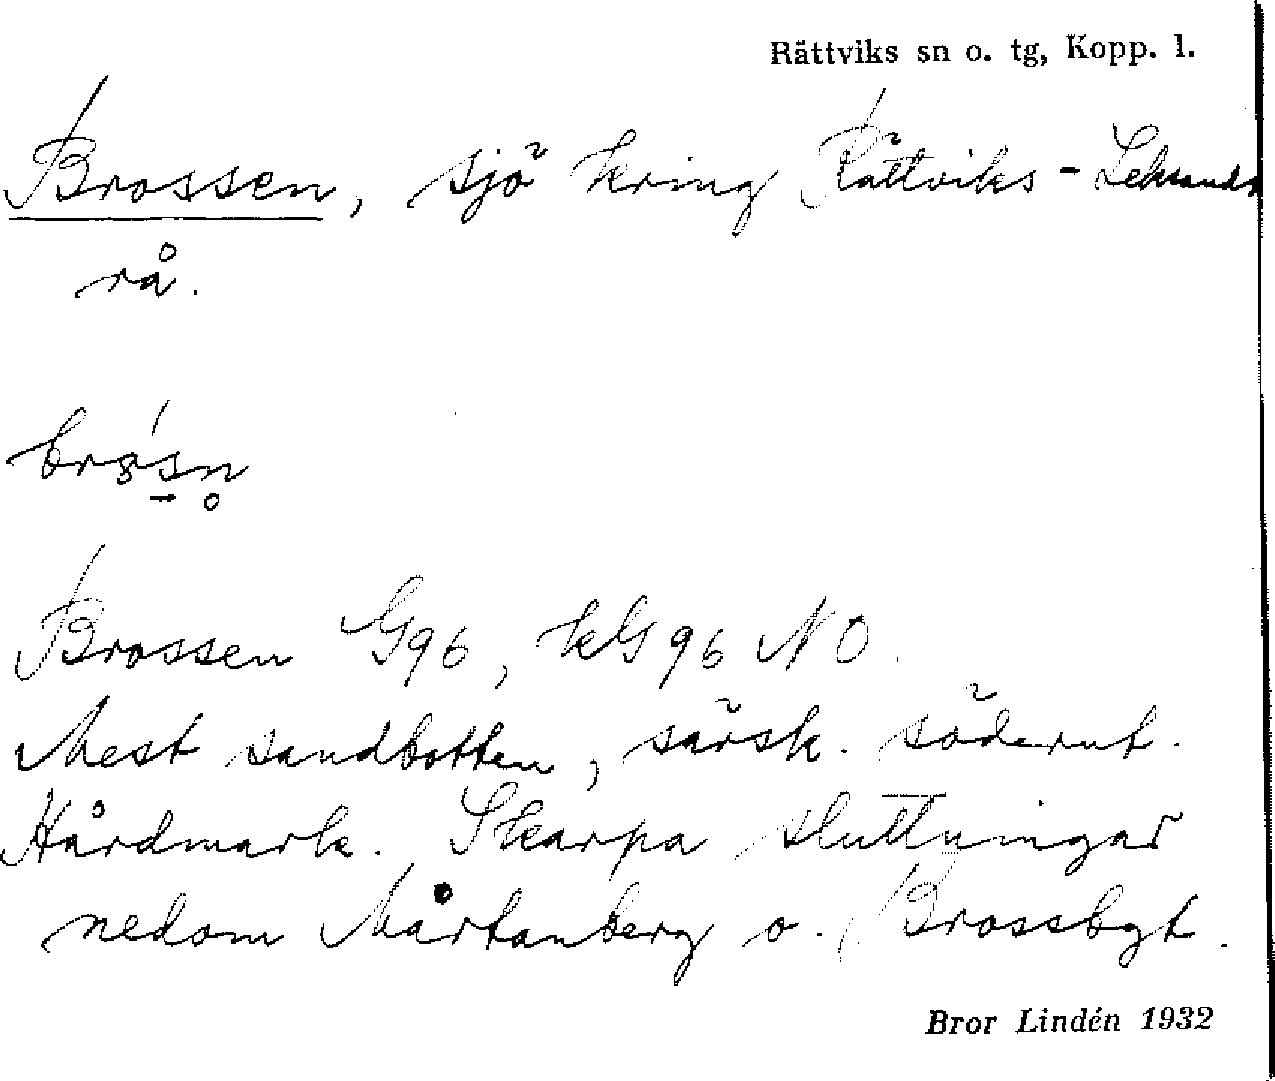 Rättviks sn o. tg, Kopp. l.
Brossen, sjö kring Rättviks-Leksands
rå.
Brossen G96, kG 96 NO.
Mest sandbotten, särsk. söderut.
Hårdmark. Skarpa sluttningar
nedom Mårtanberg o. Brossbyt.
Bror Lindén 1932